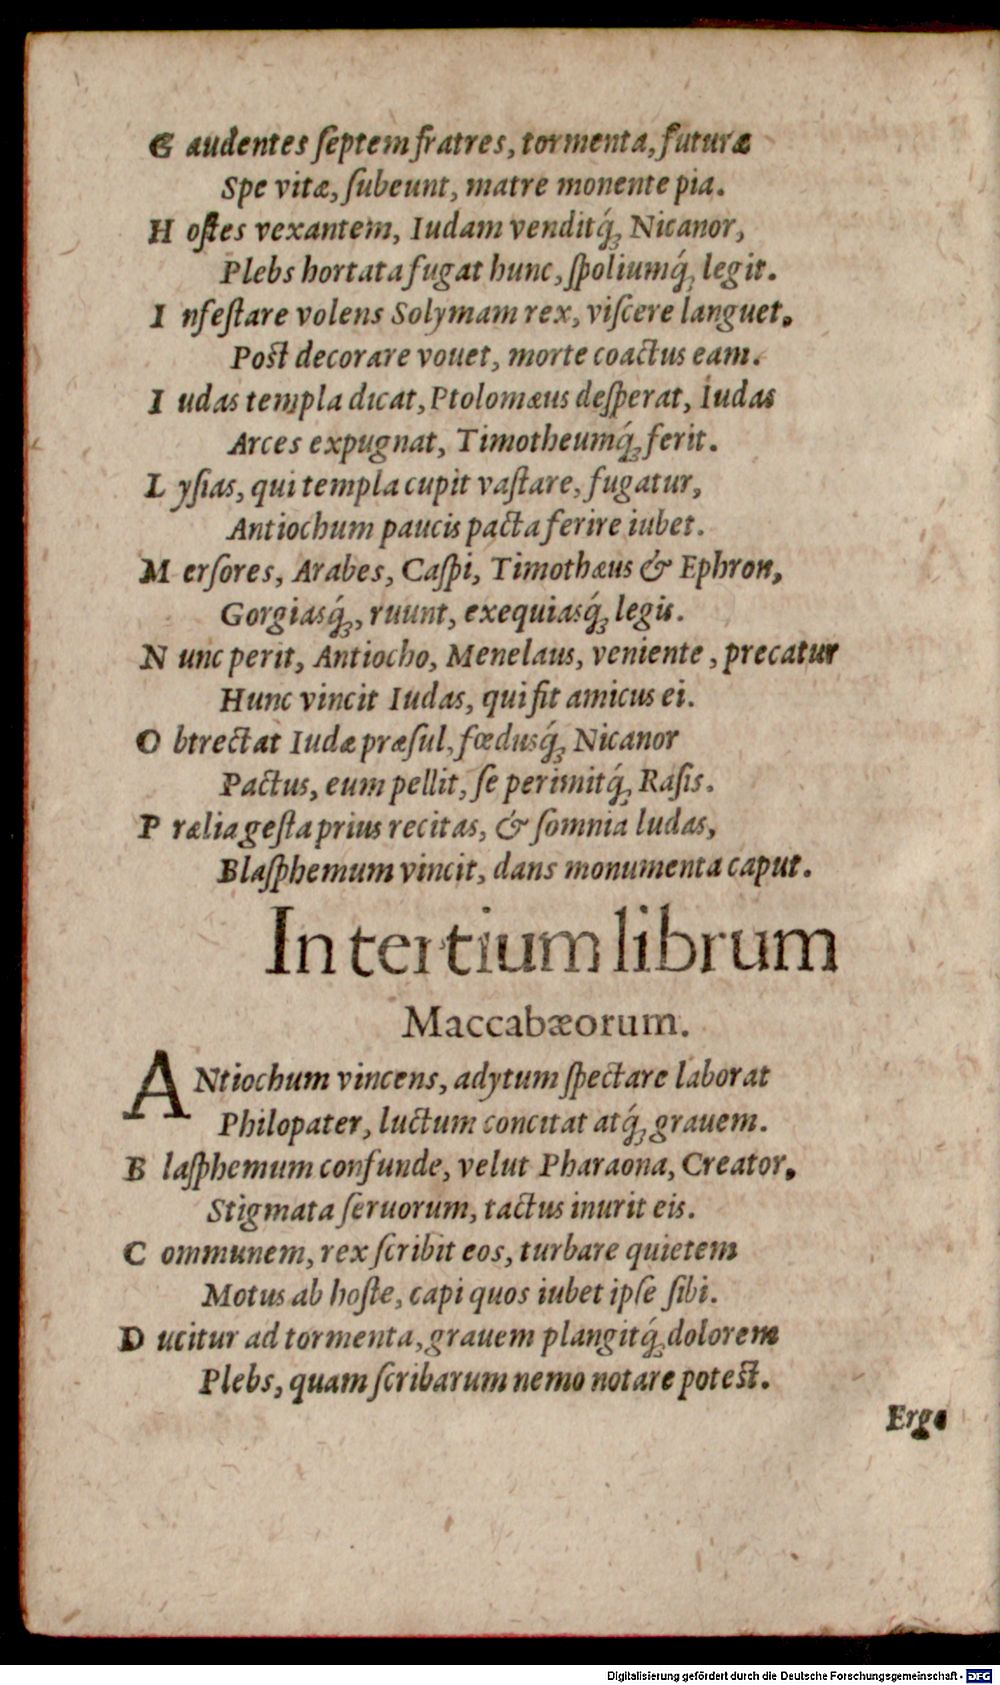 G audentes ſeptem fratres, tormenta, futuræ
Spe vitæ, ſubeunt, matre monente pia.
H oſtes vexantem, Iudam venditq́ꝫ Nicanor,
Plebs hortata fugat hunc, ſpoliumq́ꝫ legit.
I nfeſtare volens Solymam rex, viſcere languet,
Poſt decorare vouet, morte coactus eam.
I udas templa dicat, Ptolomæus deſperat, Iudas
Arces expugnat, Timotheumq́ꝫ ferit.
L yſias, qui templa cupit vaſtare, fugatur,
Antiochum paucis pacta ferire iubet.
M erſores, Arabes, Caſpi, Timothæus & Ephron,
Gorgiasq́ꝫ, ruunt, exequiasq́ꝫ legis.
N unc perit, Antiocho, Menelaus, veniente, precatur
Hunc vincit Iudas, qui fit amicus ei.
O btrectat Iudæ præſul, fœdusq́ꝫ Nicanor
Pactus, eum pellit, ſe perimitq́ꝫ Raſis.
P rælia geſta prius recitas, & ſomnia Iudas,
Blaſphemum vincit, dans monumenta caput.
In tertium librum
Maccabæorum.
ANtiochum vincens, adytum ſpectare laborat
Philopater, luctum concitat atq́ꝫ grauem.
B laſphemum confunde, velut Pharaona, Creator,
Stigmata ſeruorum, tactus inurit eis.
C ommunem, rex ſcribit eos, turbare quietem
Motus ab hoſte, capi quos iubet ipſe ſibi.
D ucitur ad tormenta, grauem plangitq́ꝫ dolorem
Plebs, quam ſcribarum nemo notare poteſt.
Ergo
Digitalisierung gefördert durch die Deutsche Forschungsgemeinschaft - DFG